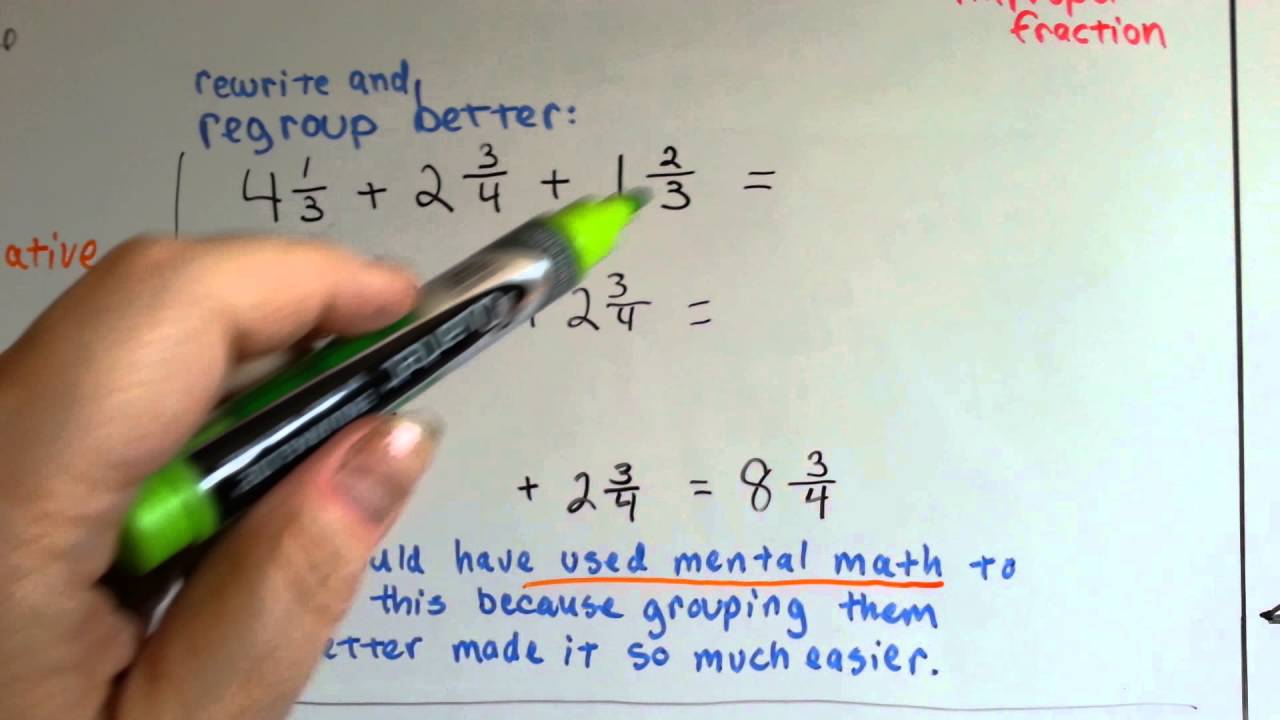 fraction
rewrite and
regroup better:
4 1/3 + 2 3/4 + 1 2/3 =
ative
2 3/4 =
+ 2 3/4 = 8 3/4
uld have used mental math to
this because grouping them
etter made it so much easier.